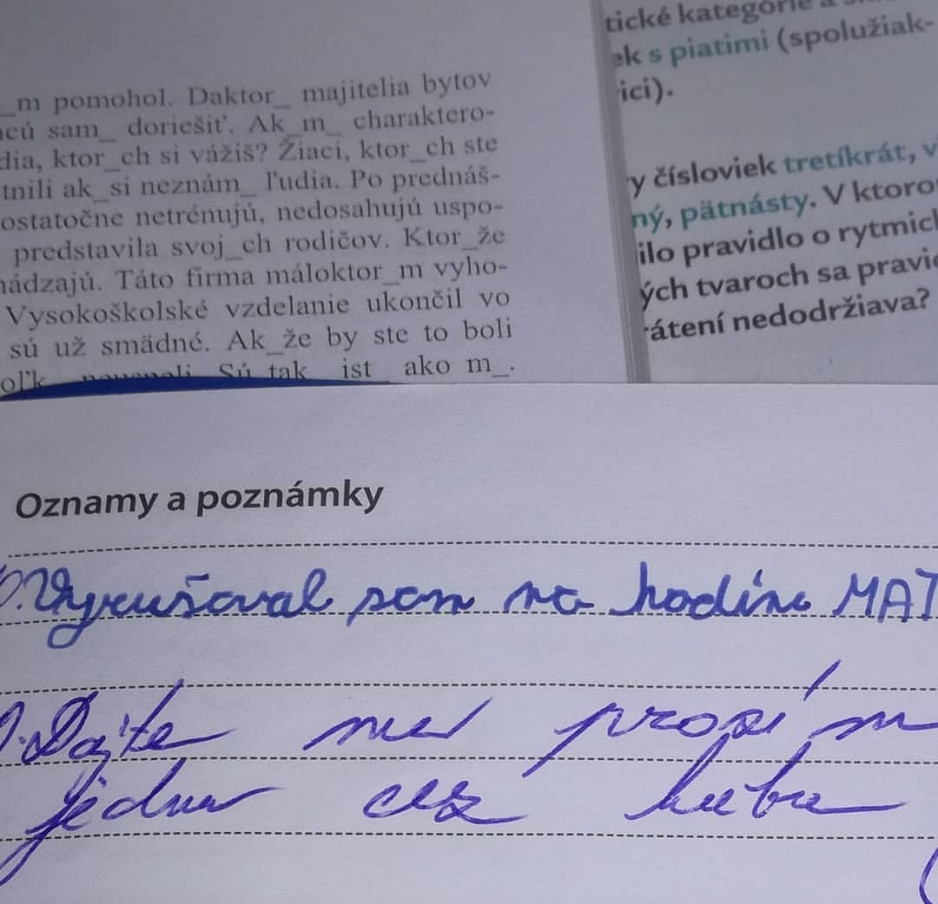 _m pomohol. Daktor_ majitelia bytov
cú sam_ doriešiť. Ak_m_ charaktero-
dia, ktor_ch si vážiš? Žiaci, ktor_ch ste
tnili ak_si neznám_ ľudia. Po prednáš-
ostatočne netrénujú, nedosahujú uspo-
predstavila svoj_ch rodičov. Ktor_že
hádzajú. Táto firma máloktor_m vyho-
Vysokoškolské vzdelanie ukončil vo
sú už smädné. Ak_že by ste to boli
oľk_ neuspeli. Sú tak_ ist_ ako m_.
tické kategórie a
ek s piatimi (spolužiak-
ici).
y čísloviek tretíkrát, v
ný, pätnásty. V ktoro
ilo pravidlo o rytmic
ých tvaroch sa pravi
rátení nedodržiava?
Oznamy a poznámky
Vyrušoval som na hodine MAT
Dajte mu prosím
jednu cez hubu